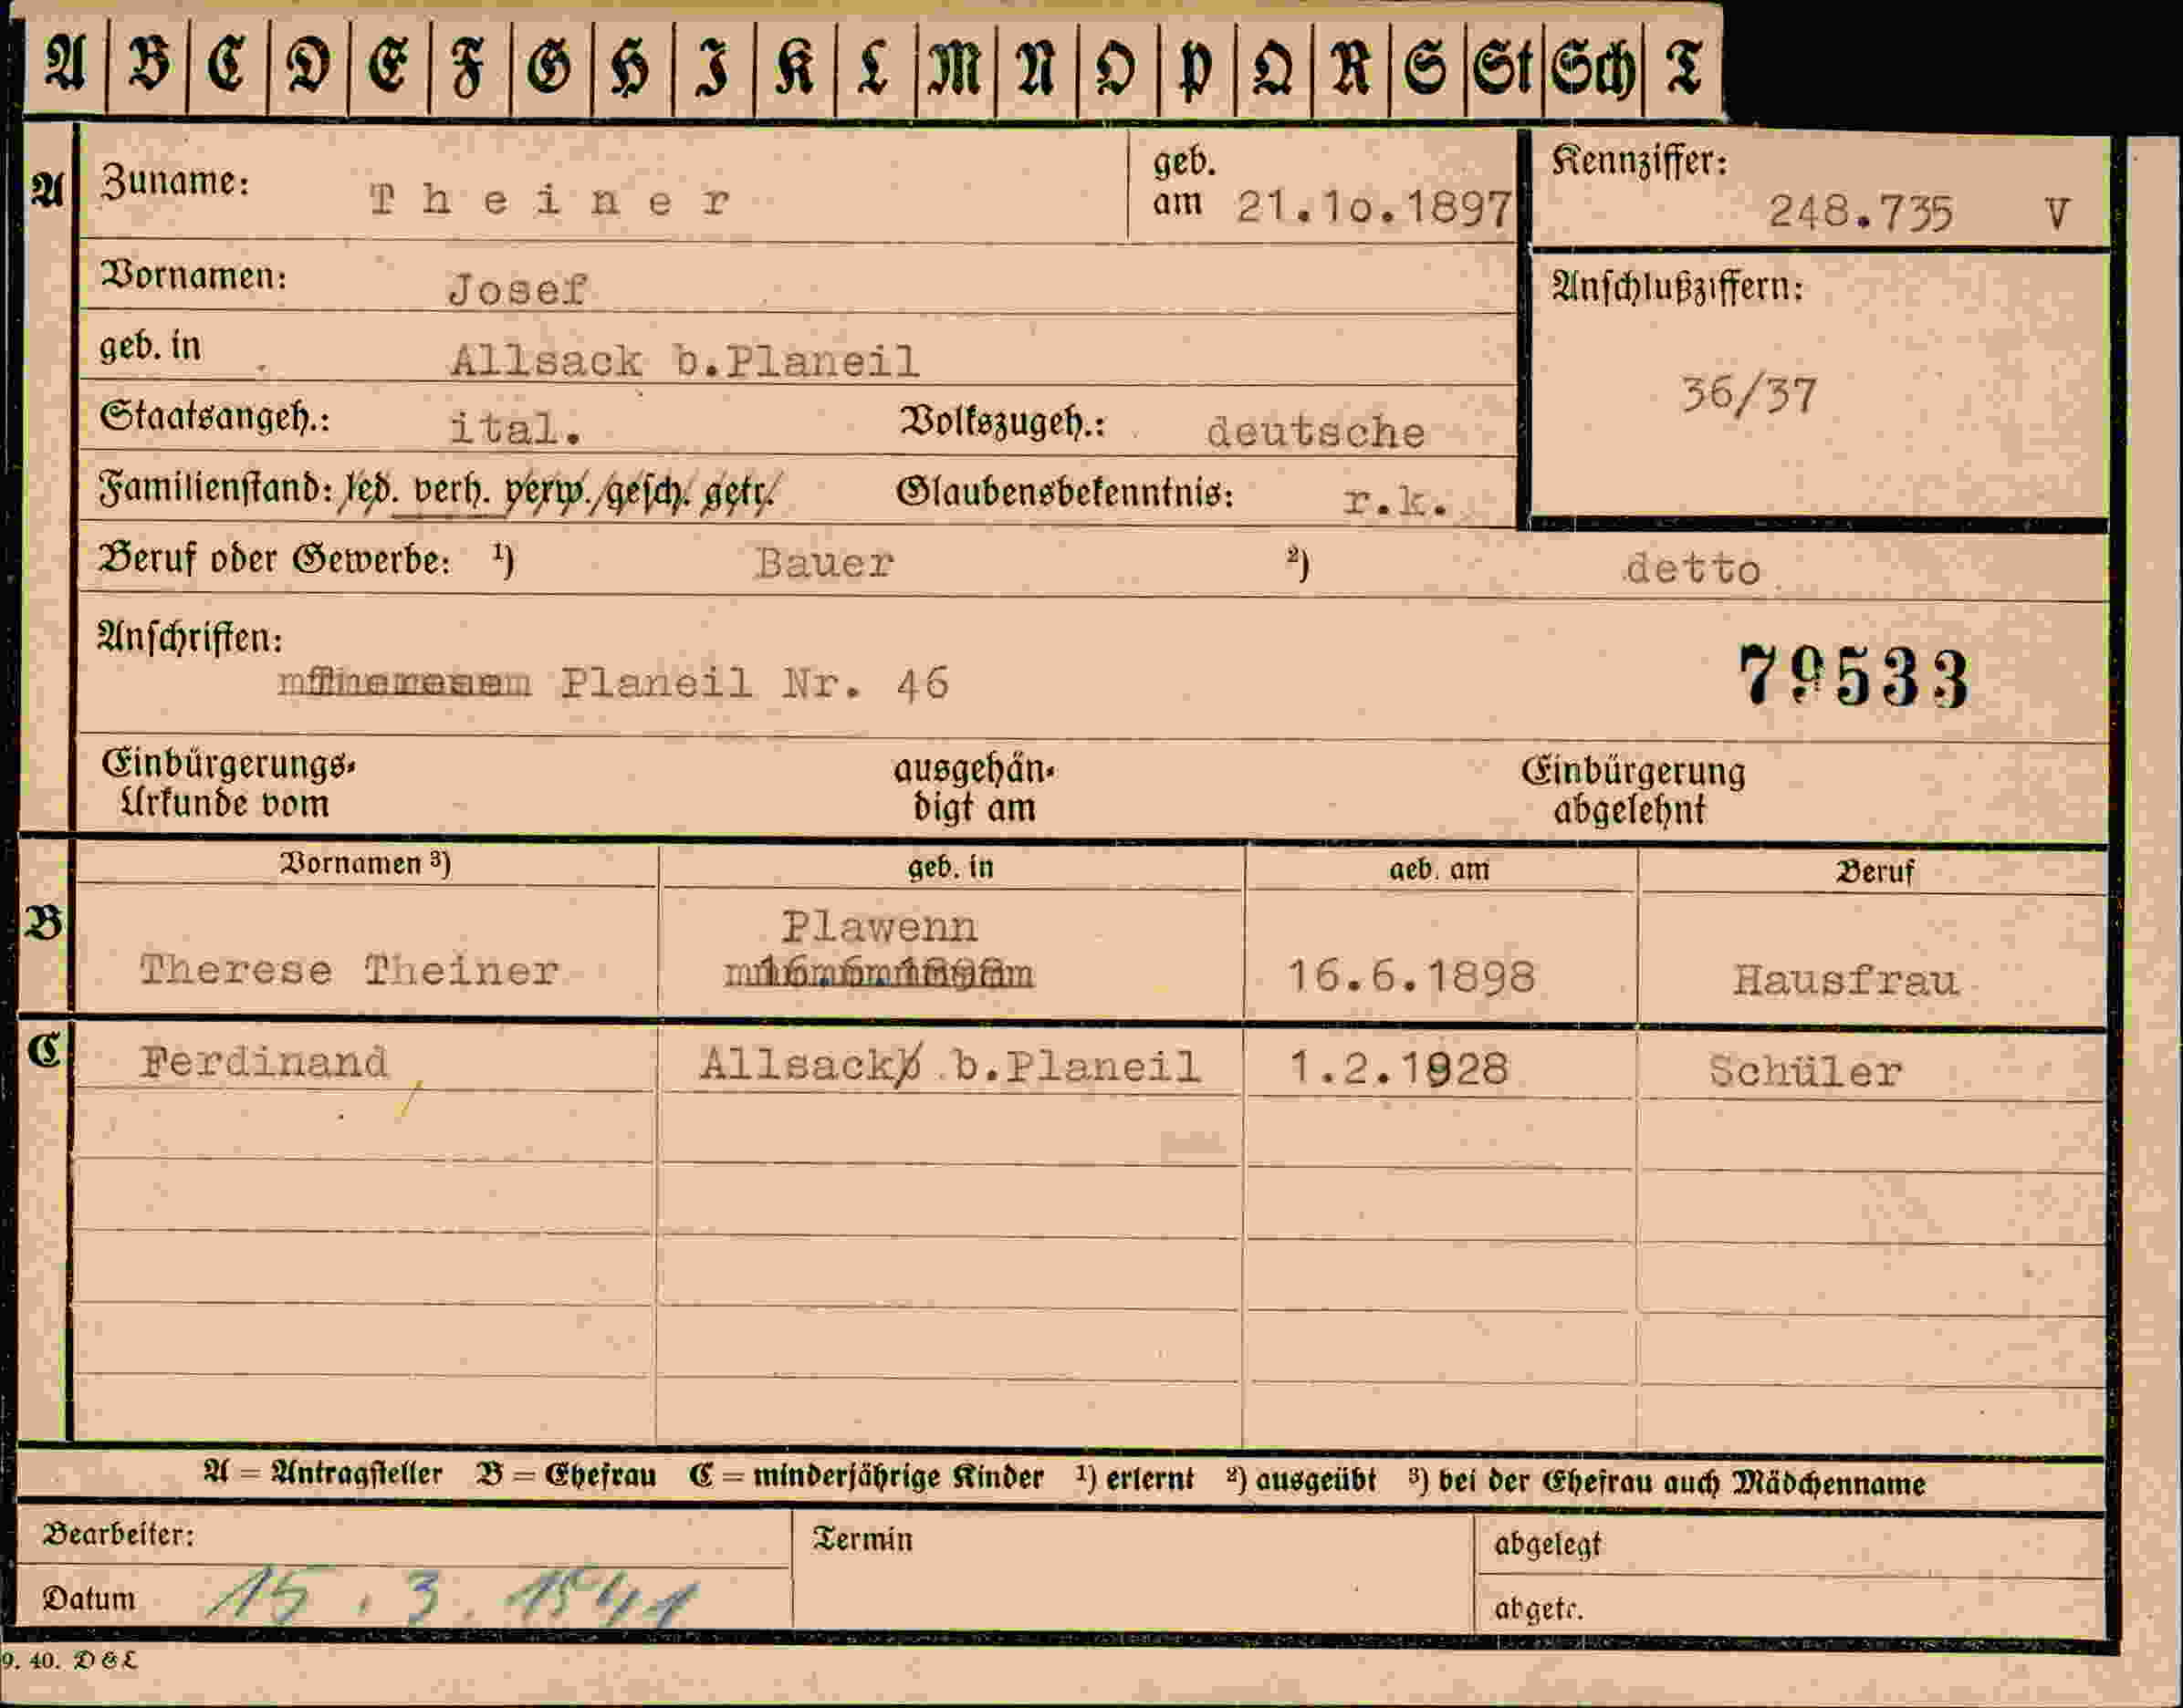 A B C D E F G H I K L M N O P Q R S St Sch T
A Zuname: Theiner geb. am 21.10.1897 Kennziffer: 248.735 V
Vornamen: Josef Anschlußziffern:
geb. in Allsack b.Planeil 36/37
Staatsangeh.: ital. Volkszugeh.: deutsche
Familienstand: led. verh. verw. gesch. getr. Glaubensbekenntnis: r.k.
Beruf oder Gewerbe: ¹) Bauer ²) detto
Anschriften: 79533
Planeil Nr. 46
Einbürgerungs- ausgehän- Einbürgerung
Urkunde vom digt am abgelehnt
Vornamen ³) geb. in geb. am Beruf
B Plawenn
Therese Theiner 16.6.1898 16.6.1898 Hausfrau
C Ferdinand Allsack b.Planeil 1.2.1928 Schüler
A = Antragsteller B = Ehefrau C = minderjährige Kinder ¹) erlernt ²) ausgeübt ³) bei der Ehefrau auch Mädchenname
Bearbeiter: Termin abgelegt
Datum 15.3.1941 abgetr.
9. 40. D&L